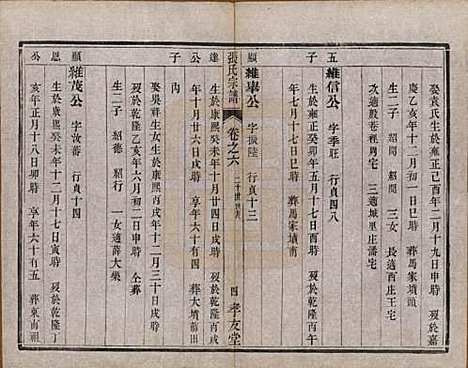 娶袁氏生於雍正己酉年二月十九日申時　歿於嘉
慶乙亥年十二月初一日巳時　葬馬家墳南
生二子　紹閒　紹聞　三女　長適酉庄王宅
次適殷巷裡周宅　三適城里庄潘宅
五子　維信公　字季旺　行貞四八
生於雍正癸卯年五月十七日酉時　歿於乾隆丙午
年七月十七日時　葬馬家墳南
顯達公子　維康公　字振陸　行貞十三
生於康熙癸未年十月廿四日戌時　歿於乾隆丙
年十月廿六日戌時　享年六十有四　葬大墳前田
內
張氏宗譜　卷之六　二十世　四　孝友堂
娶吳祥生女生於康熙丙戌年十二月三十日戌時
歿於乾隆乙亥年六月初二日申時　仝葬
生二子　紹德　紹行　一女適薛大榮
顯恩公　維茂公　字汝蕃　行貞十四
生於康熙癸未年十二月十七日時　歿於乾隆丁
亥年正月十八日卯時　享年六十有五　葬東南祖